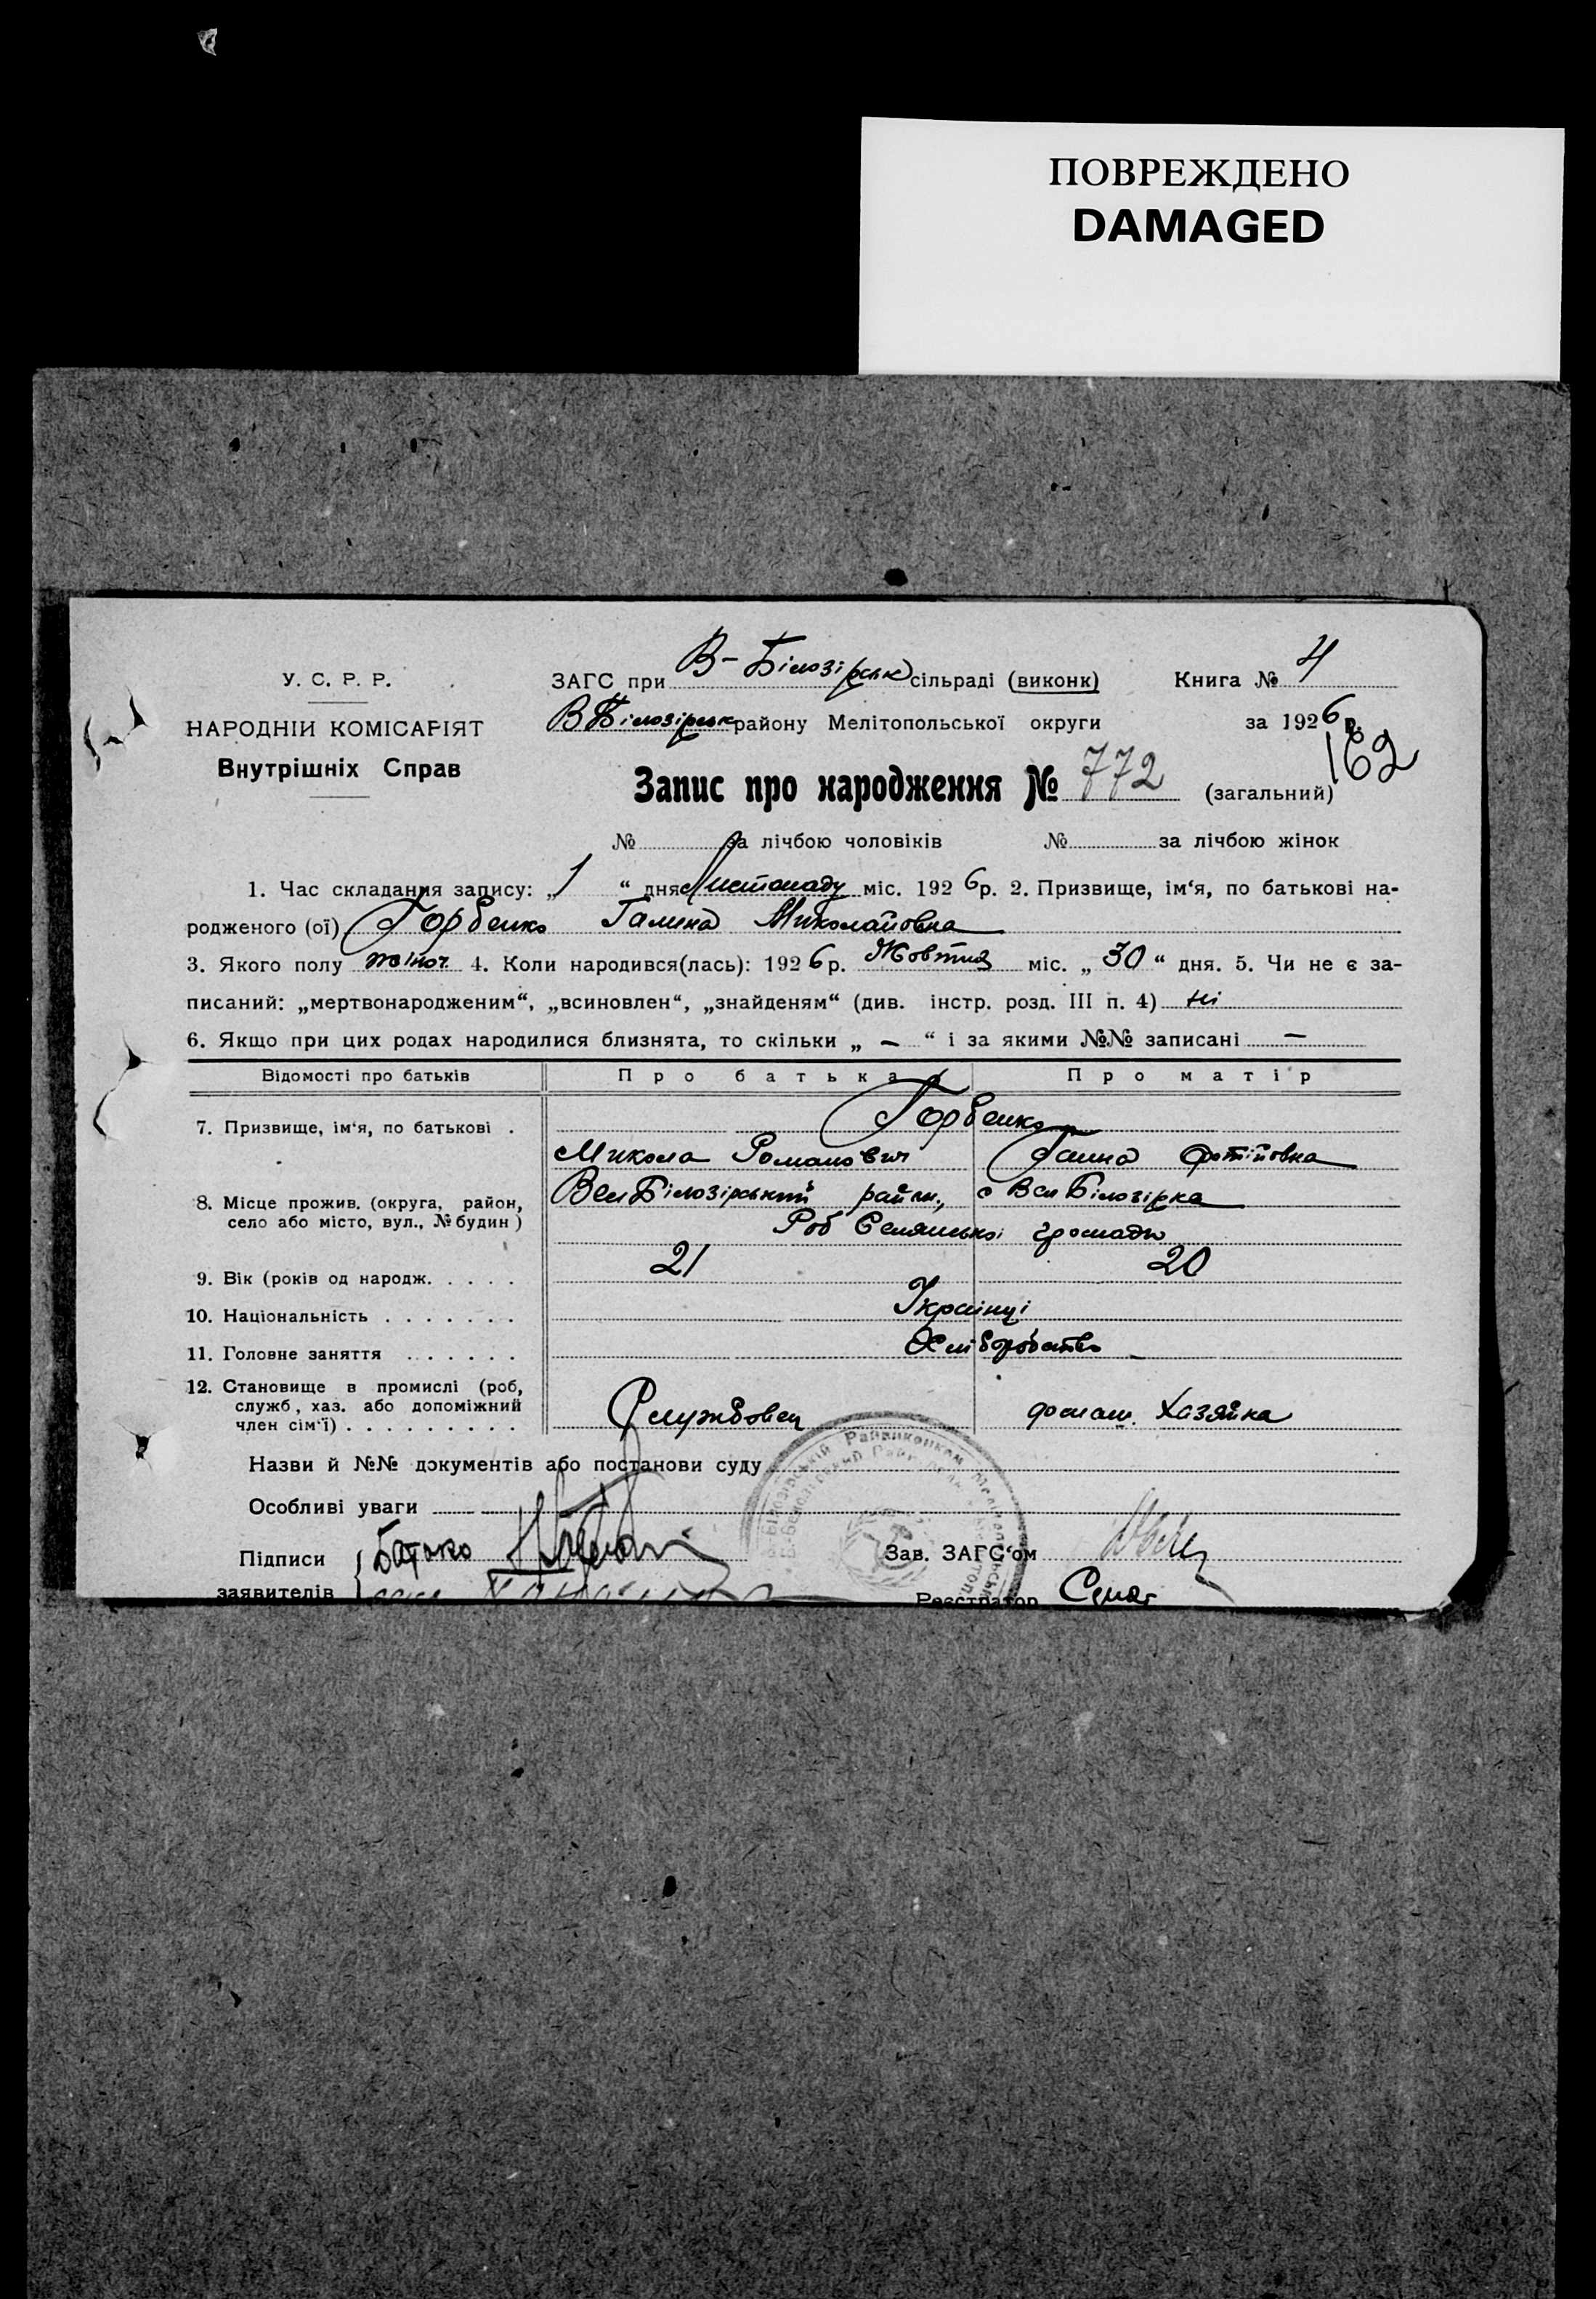 ПОВРЕЖДЕНО
DAMAGED
У. С. Р. Р.
НАРОДНІЙ КОМІСАРІЯТ
Внутрішніх Справ
ЗАГС при В-Білозірськ сільраді (виконк) Книга № 4
В Білозірськ району Мелітопольської округи за 1926 р.
162
Запис про народження № 772 (загальний)
№ за лічбою чоловіків № за лічбою жінок
1. Час складання запису: „1“ дня Листопаду міс. 1926 р. 2. Призвище, ім‘я, по батькові на-
родженого (ої) Горбенко Галина Миколаївна
3. Якого полу жіноч. 4. Коли народився(лась): 1926 р. Жовтня міс. „30“ дня. 5. Чи не є за-
писаний: „мертвонародженим“, „всиновлен“, „знайденям“ (див. інстр. розд. III п. 4) ні
6. Якщо при цих родах народилися близнята, то скільки „ – “ і за якими №№ записані –
Відомості про батьків Про батька Про матір
7. Призвище, ім‘я, по батькові . Горбенко
Микола Романович Ганна Фотіївна
8. Місце прожив. (округа, район, село або місто, вул., № будин) Вел Білозірський район, с Вел Білозірка
Роб Селянської громади
9. Вік (років од народж. . . . . 21 20
10. Національність . . . . . . . Українці
11. Головне заняття . . . . . . Хліборобство
12. Становище в промислі (роб, служб, хаз. або допоміжний член сім‘ї) . . . . . . . . . Службовец домаш. Хазяйка
Назви й №№ документів або постанови суду
Особливі уваги
Підписи Батько Зав. ЗАГС‘ом
заявителів Реєстратор